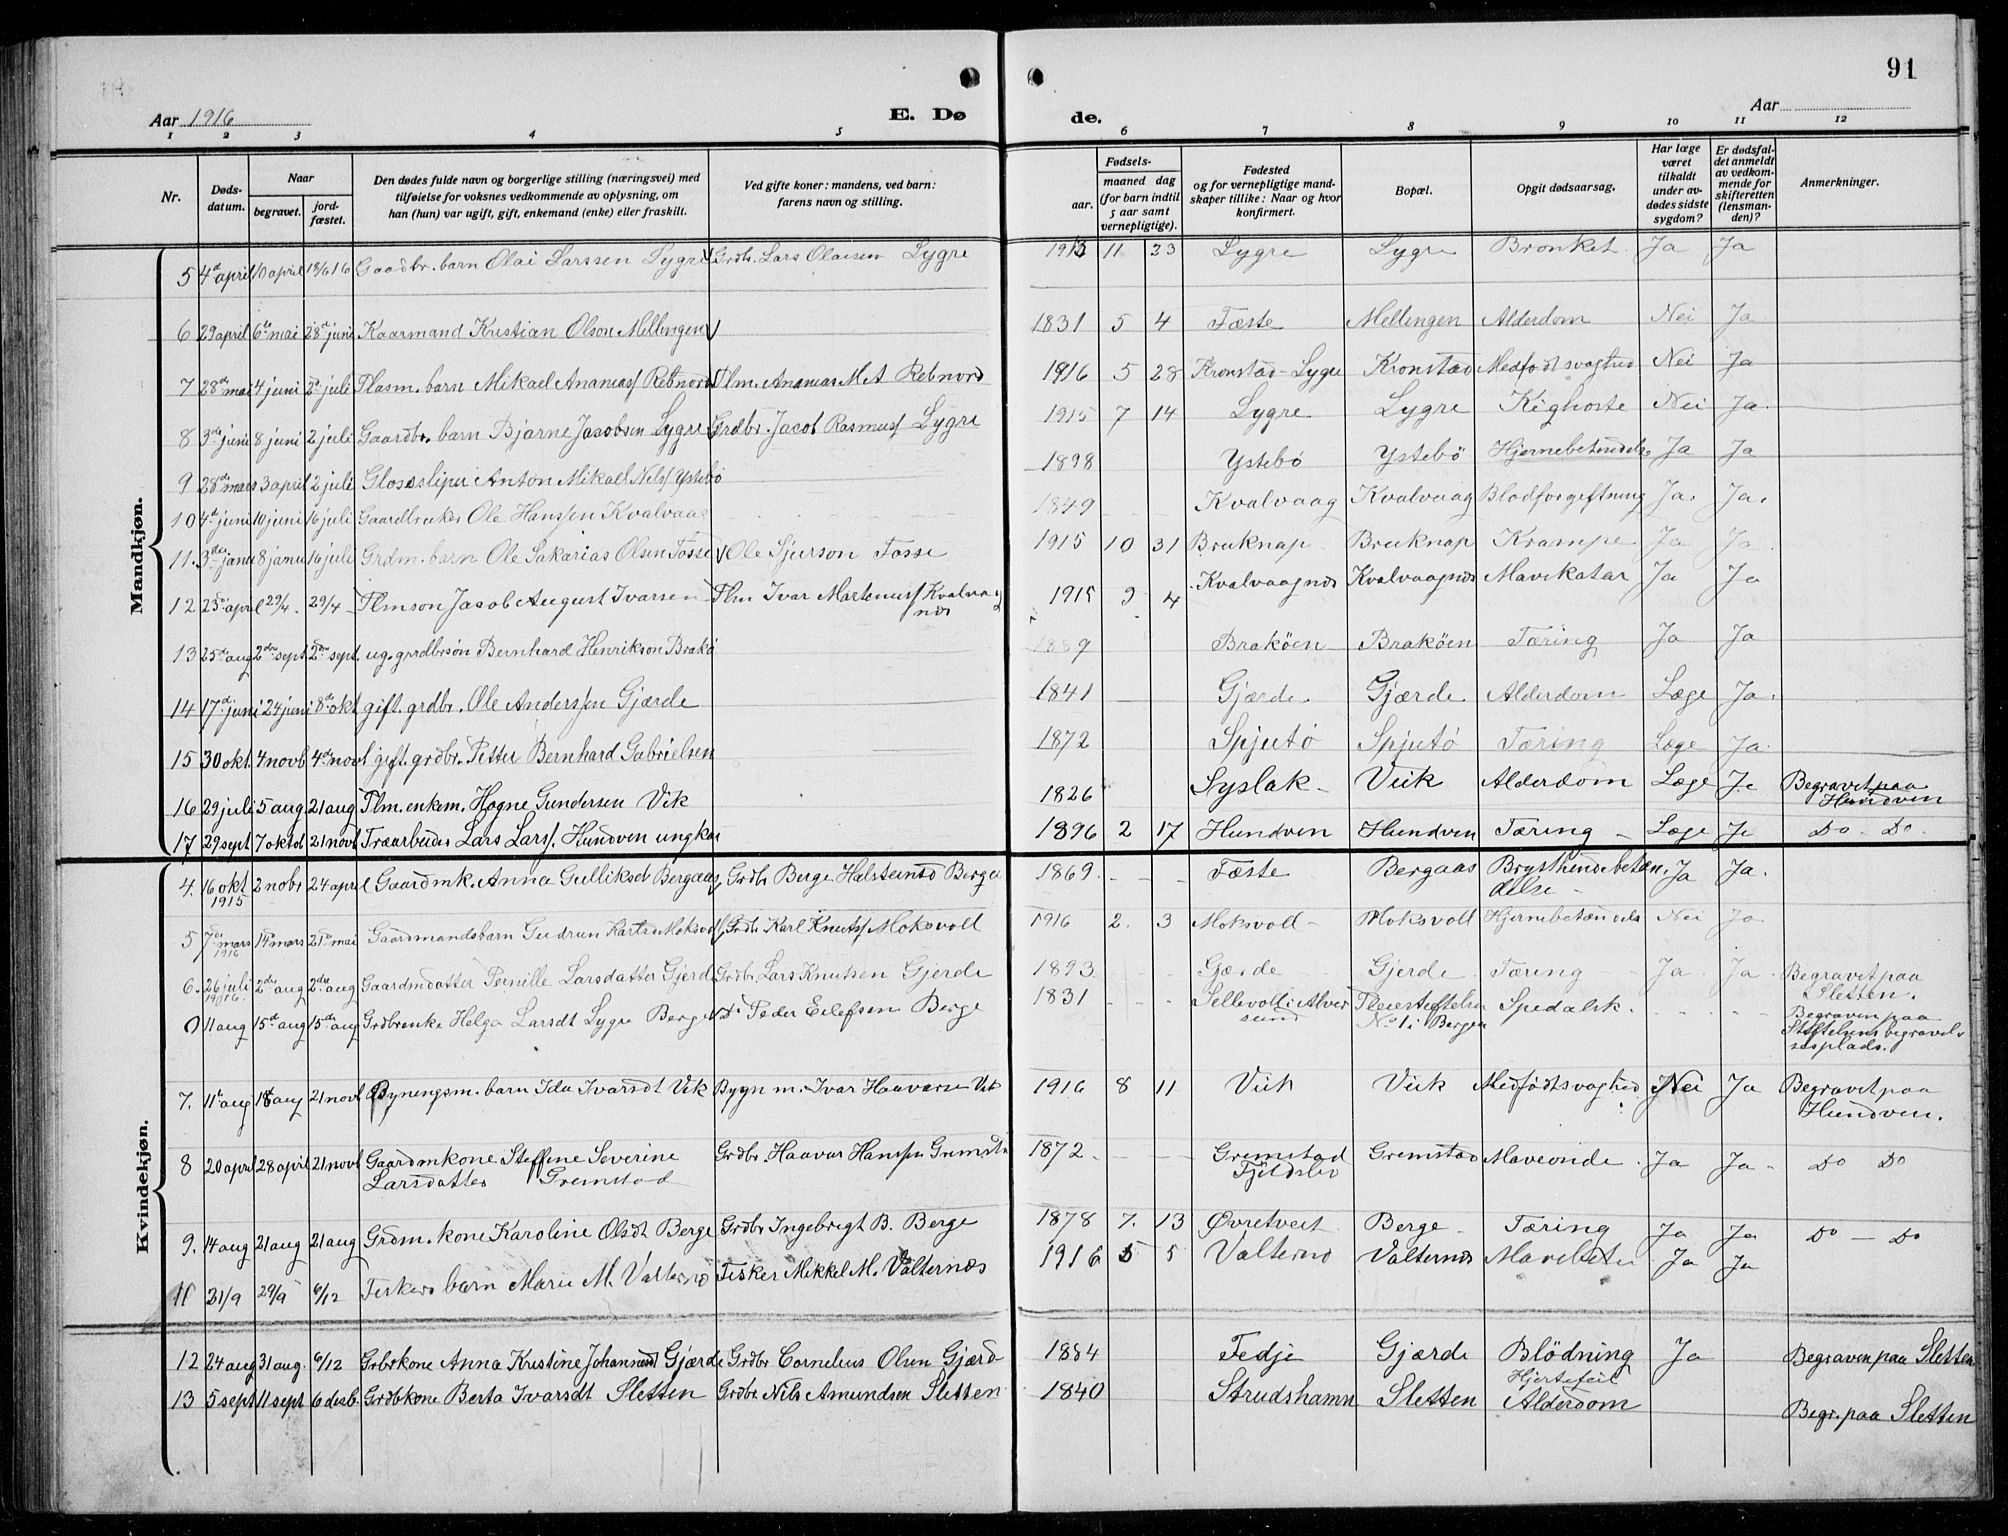 91
Aar 1916
E. Døde.
Aar
1 2 3 4 5 6 7 8 9 10 11 12
Nr.
Døds-datum.
Naar
begravet.
jord-fæstet.
Den dødes fulde navn og borgerlige stilling (næringsvei) med
tilføielse for voksnes vedkommende av oplysning, om
han (hun) var ugift, gift, enkemand (enke) eller fraskilt.
Ved gifte koner: mandens, ved barn:
farens navn og stilling.
Fødsels-
aar.
maaned dag
(for barn indtil
5 aar samt
vernepligtige).
Fødested
og for vernepligtige mand-
skaper tillike: Naar og hvor
konfirmert.
Bopæl.
Opgit dødsaarsag.
Har læge
været
tilkaldt
under av-
dødes sidste
sygdom?
Er dødsfal-
det anmeldt
av vedkom-
mende for
skifteretten
(lensman-
den)?
Anmerkninger.
Mandkjøn.
5 4de april 10 april 18/6 16 Gaardbr. barn Olai Larssen Lygre Grdb. Lars Olaisen Lygre 1913 11 23 Lygre Lygre Bronket. Ja Ja
6 29 april 6te mai 28de juni Kaarmand Kristian Olson Mellingen 1831 5 4 Fæste Mellingen Alderdom Nei Ja
7 28de mai 4 juni 2d juli Flasm. barn Mikael Ananiass Rebnord Flm. Ananias M. A Rebnord 1916 5 28 Kronstad-Lygre Kronstad Medfødt svaghed Nei Ja
8 3de juni 8 juni 2 juli Gaardbr. barn Bjarne Jacobsen Lygre Grdbr. Jacob Rasmuss Lygre 1915 7 14 Lygre Lygre Kighoste Nei Ja.
9 28de mars 3 april 2 juli Anton Mikael Nils Ystebö 1898 Ystebö Ystebö Hjernebetendelse Ja Ja
10 4de juni 10 juni 16 juli Gaardbruker Ole Hanssen Kvalvaag 1849 Kvalvaag Kvalvaag Blodforgiftning Ja. Ja.
11. 3de janu 8 janu 16 juli Grdm. barn Ole Sakarias Olsen Fosse Ole Sjurson Fosse 1915 10 31 Bruknap Bruknap Krampe Ja Ja
12 23de april 29/4. 29/4 Flmson Jacob August Ivarsen Flm Ivar Martenuss Kvalvaagnes 1915 9 4 Kvalvaagnes Kvalvaagnes Mavekatar Ja Ja
13 25de aug 2den sept 2den sept. ug. grdbrsön Bernhard Henrikson Brakö 1889 Braköen Braköen Tæring Ja Ja
14 17de juni 24 juni 8de okt gift. grdbr. Ole Anderssen Gjærde 1841 Gjærde Gjærde Alderdom Læge Ja.
15 30 okt. 4 novb 4de novb gift. grdbr. Petter Bernhard Gabrielsen 1872 Spjutö Spjutö Tæring Læge Ja.
16 29 juli 5 aug 21 aug Flm. enkem. Hogne Gundersen Vik 1826 Syslak Viik Alderdom Læge Ja Begravet paa Hundven
17 29 sept 7 oktob 21 novb Træarbeider Lars Larss. Hundven ungkar 1896 2 17 Hundven Hundven Tæring Læge Ja Do - Do.
Kvindekjøn.
4. 16 okt 1915 2 nobr 24 april Gaardmk. Anna Gulliksdt Bergaas Grdbr Berge Halsteinsö Berge 1869 Fæste Bergaas Brysthindebetændelse Ja Ja.
5 7de mars 1916 14de mars 21de mai Gaardmandsbarn Gudrun Karlsd Moksvoll Grdbr Karl Knutss Moksvoll 1916 2. 3 Moksvoll Moksvoll Hjernebetændels Nei Ja
6. 26 juli 1916. 2den aug 2den aug Gaardmdatter Pernille Larsdatter Gjerde Grdbr. Lars Knutsen Gjerde 1893 Gjærde Gjerde Tæring Ja Ja Begravet paa Sletten.
0 11 aug 15de aug 15de aug Grdbrenke Helga Larsdt Lygre Berge Do Peder Eilefsen Berge 1831 Sellevoll i Alversund Pleiestiftelsen No 1 i Bergen Spedalsk. Begraven paa Stiftelsens begravelsesplads.
7. 11te aug 18de aug 21 novb Bygningsm. barn Ida Ivarsdt Vik Bygn m. Ivar Haavarse Vik 1916 8 11 Viik Viik Medfødtsvaghed Nei Ja Begravet paa Hundven.
8 20 april 28 april 21 novb Gaardmkone Steffine Severine Larsdatter Gremstad Grdbr. Haavar Hanssen Gremstad 1872. Gremstad Fjeldsbö Gremstad Maveonde. Ja Ja Do Do
9. 14 aug 21 aug 21 aug Grdm. kone Karoline Olsdt Berge Grdbr Ingebrigt B. Berge 1878 7. 13 Øvretveit Berge Tæring Ja Ja Do - Do
11 21/9 29/9 6/12 Fiskers barn Marie M. Valternes Fisker Mikkel M. Valternæs 1916 5 5 Valternes Valternes Ja Ja
12 24 aug 31 aug. 6/12 Grbrkone Anna Kristine Johannesdt Gjærde Grdbr Cornelius Olsen Gjærd 1884 Fedje Gjærde Blödning Ja Begraven paa Sletten
13 5 sept 11 sept 6 desb. Grdbkone Berta Ivarsdt Sletten Grdbr. Nils Amundsen Sletten 1840 Strudshamn Sletten Hjertefeil Alderdom Begr. paa Sletten